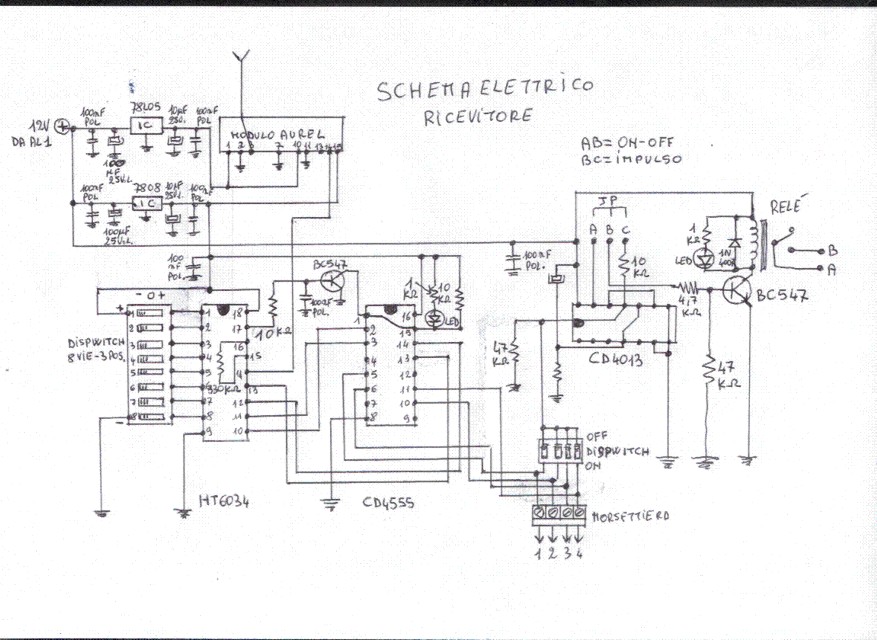 SCHEMA ELETTRICO
RICEVITORE
AB= ON-OFF
BC= IMPULSO
12V
DA AL1
100nF
POL
78L05
IC
10µF
25V.L.
100nF
POL
100
µF
25V.L.
MODULO AUREL
1 2 3 7 10 11 13 14 15
100nF
POL
7808
IC
10µF
25V.L.
100nF
POL
100µF
25V.L.
100
nF
POL.
BC547
100nF
POL.
10KΩ
- O +
+
1
2
3
4
5
6
7
8
-
DISPWITCH
8 VIE-3 POS.
1
2
3
4
5
6
7
8
9
18
17
16
15
14
13
12
11
10
330KΩ
HT6034
1
KΩ
10
KΩ
LED
1
2
3
4
5
6
7
8
16
15
14
13
12
11
10
9
CD4555
100nF
POL.
JP
A B C
10
KΩ
47
KΩ
CD4013
4,7
KΩ
47
KΩ
1
KΩ
LED
1N
RELÉ
B
A
BC547
OFF
DISPWITCH
ON
MORSETTIERA
1 2 3 4